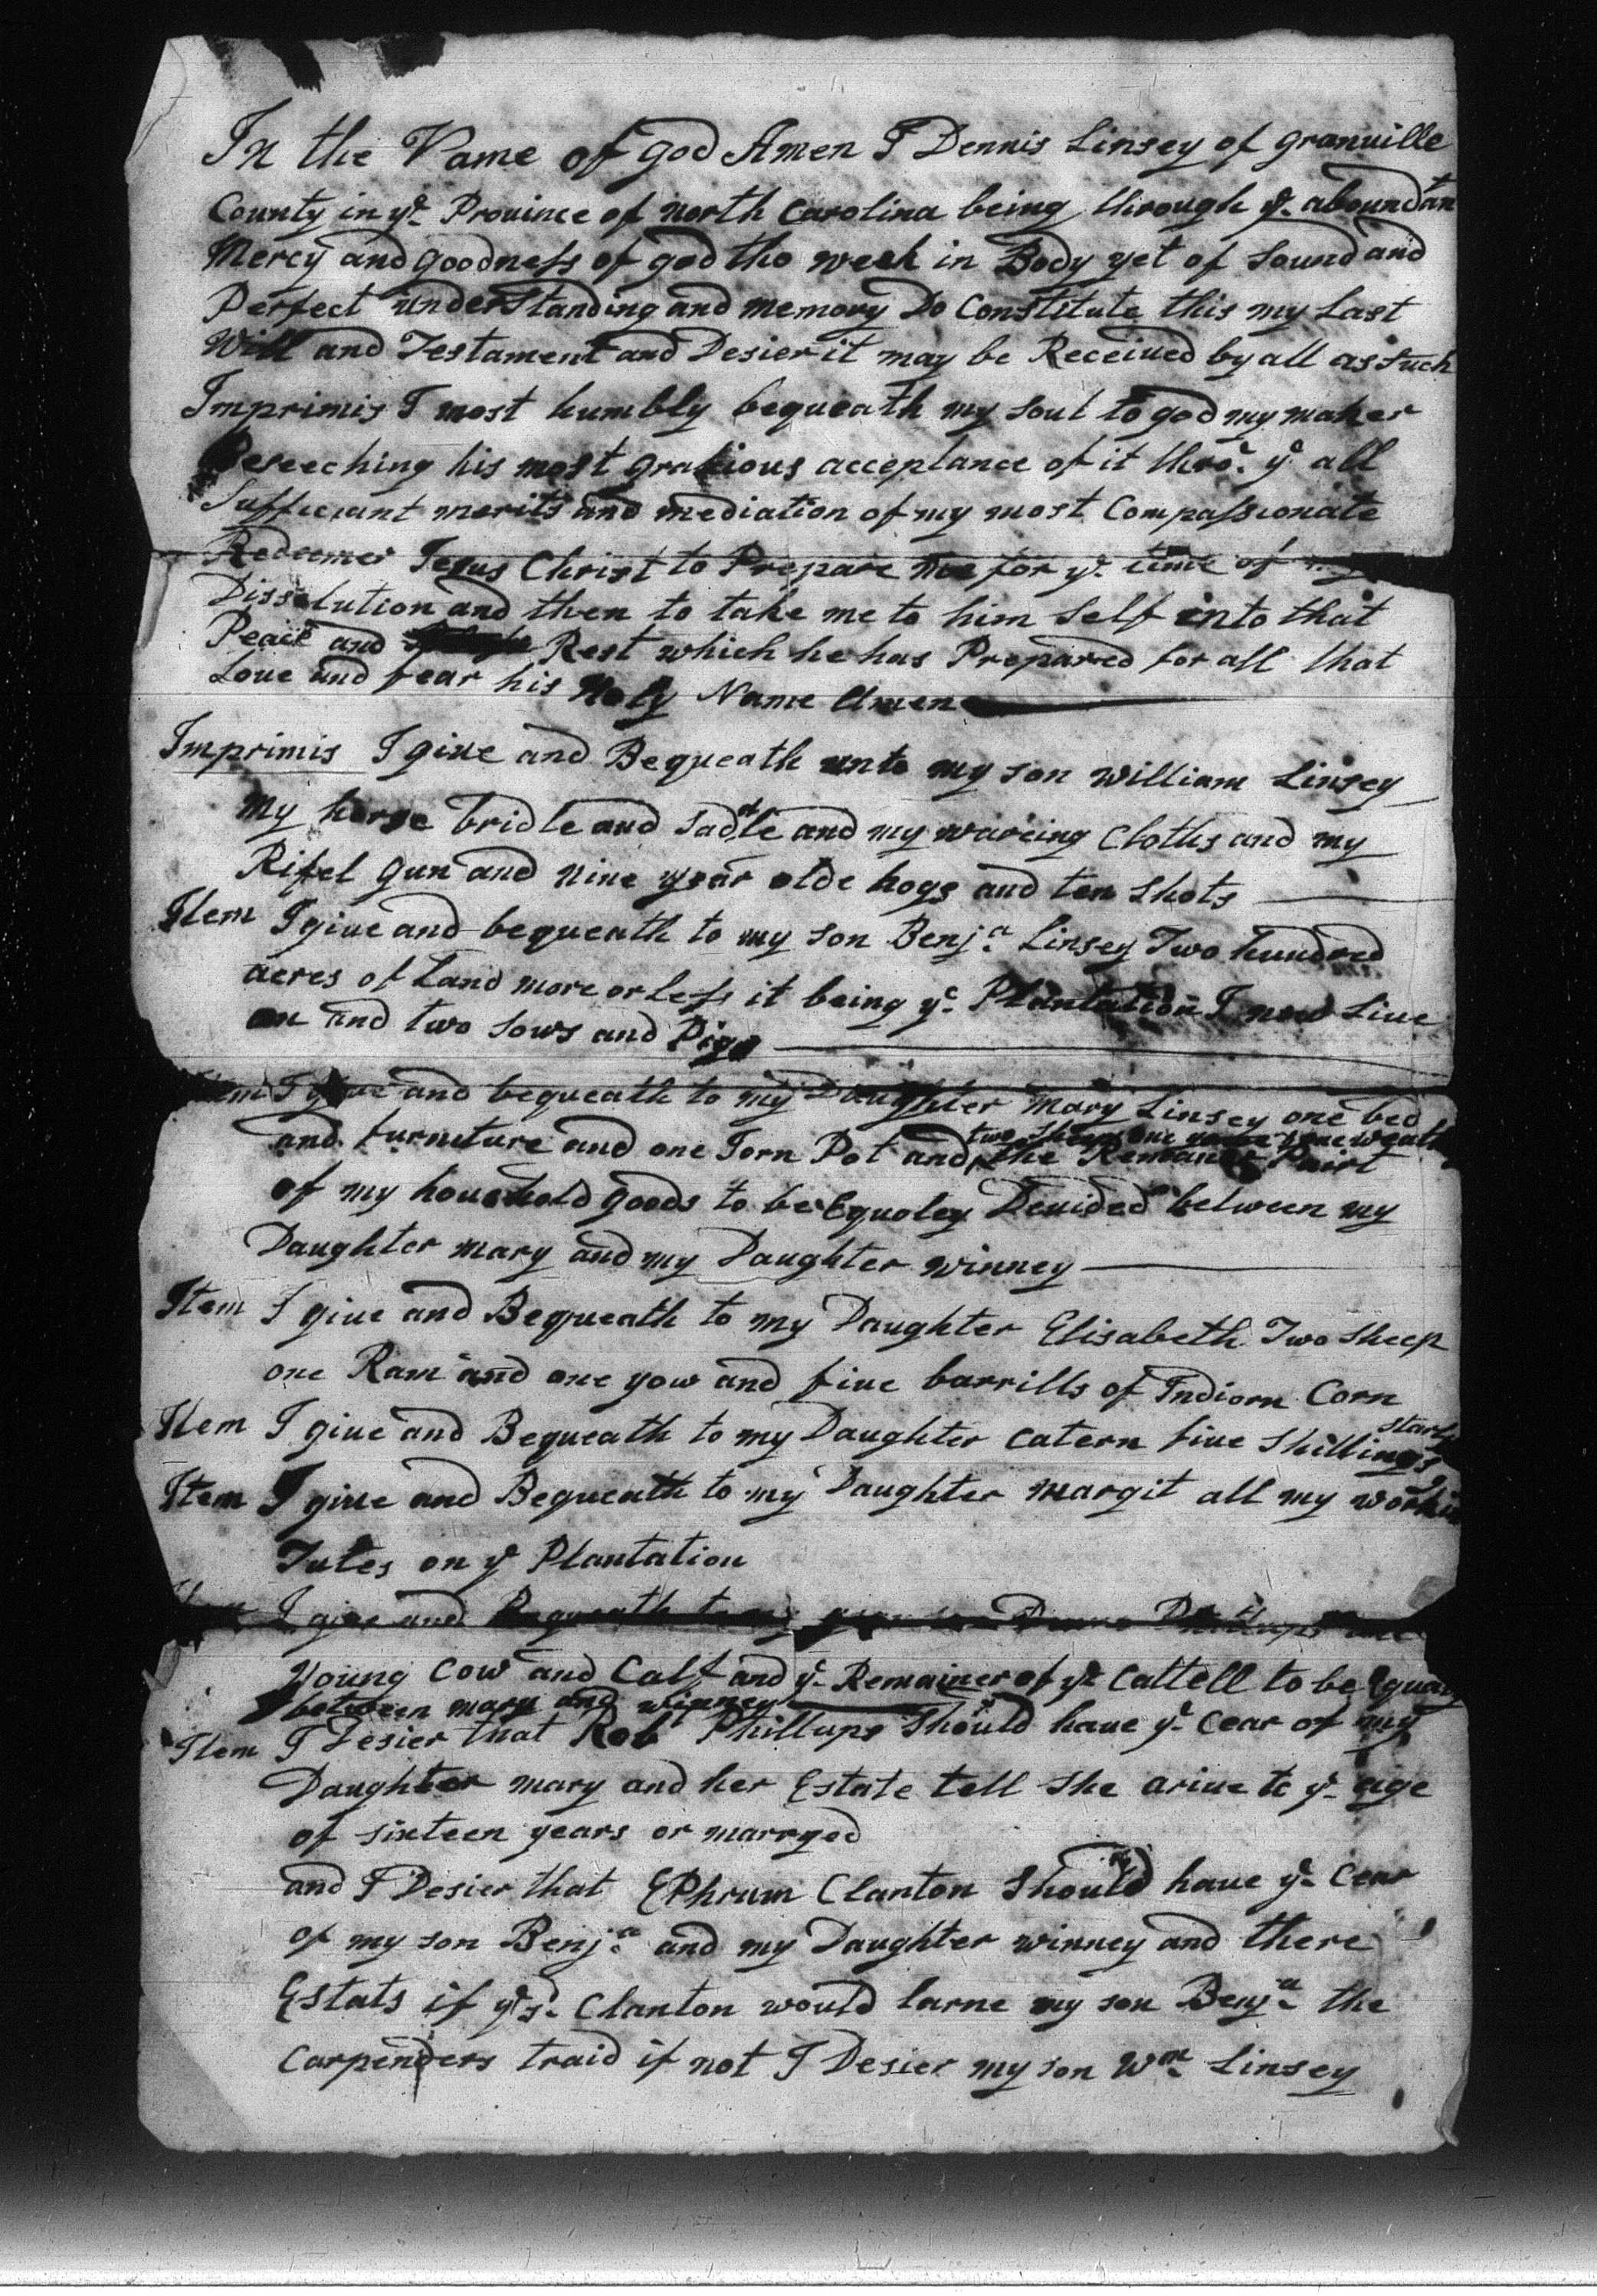 In the Name of god Amen I Dennis Linsey of granuille
County in ye Prouince of north Carolina being through ye aboundant
Mercy and goodness of god tho week in Body yet of Sound and
Perfect understanding and memory Do Constitute this my Last
Will and Testament and Desier it may be Receiued by all as Such
Imprimis I most humbly bequeath my Soul to god my maker
Beseeching his most gracious acceptance of it thro ye all
Sufficiant merits and mediation of my most Compassionate
Redeemer Jesus Christ to Prepare me for ye time of
Dissolution and then to take me to him Self into that
Peace and Rest which he has Prepared for all that
Loue and fear his Holy Name Amen
Imprimis I giue and Bequeath unto my son William Linsey
my horse bridle and Sadle and my wareing Cloths and my
Rifel gun and nine year olde hogs and ten Shots
Item I giue and bequeath to my Son Benja Linsey Two hundred
acres of Land more or Less it being ye Plantation I now Liue
on and two Sows and Pigs
Item I giue and bequeath to my Daughter Mary Linsey one bed
two sheep one
and furniture and one Iorn Pot and the Remaner Pairt
of my household goods to be Equaley Deuided between my
Daughter mary and my Daughter winney
Item I giue and Bequeath to my Daughter Elisabeth Two Sheep
one Ram and one yow and fiue barrills of Indiorn Corn
Item I giue and Bequeath to my Daughter Catern fiue Shillings
Item I giue and Bequeath to my Daughter margit all my
Tules on ye Plantation
I giue and Bequeath to my
Young Cow and Calf and ye Remainer of ye Cattell to be
between mary and winney
Item I Desier that Robt Phillups Should haue ye Cear of my
Daughter mary and her Estate tell She ariue to ye aige
of sixteen years or marryed
and I Desier that EPhrum Clanton Should haue ye Cear
of my son Benja and my Daughter winney and there
Estats if ye sd Clanton would larne my son Benja the
Carpenders traid if not I Desier my son Wm Linsey